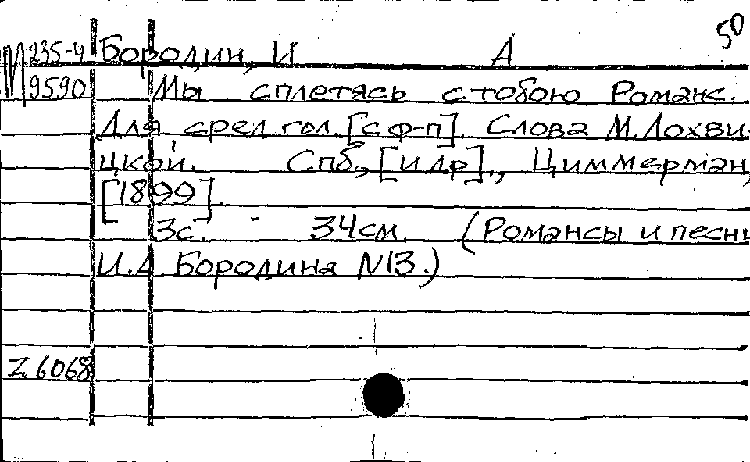 50
М 235-4 Бородин, И А
9590 Мы сплетясь с тобою Романс.
Для сред гол. [с ф-п]. Слова М. Лохви-
цкой. Спб., [и др]., Циммерман,
[1899].
3с. 34см. (Романсы и песни
И.А Бородина N13.)
Z 6068